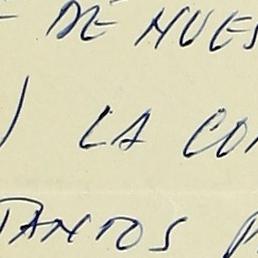 - DE NUES
) LA CON
TANTOS P